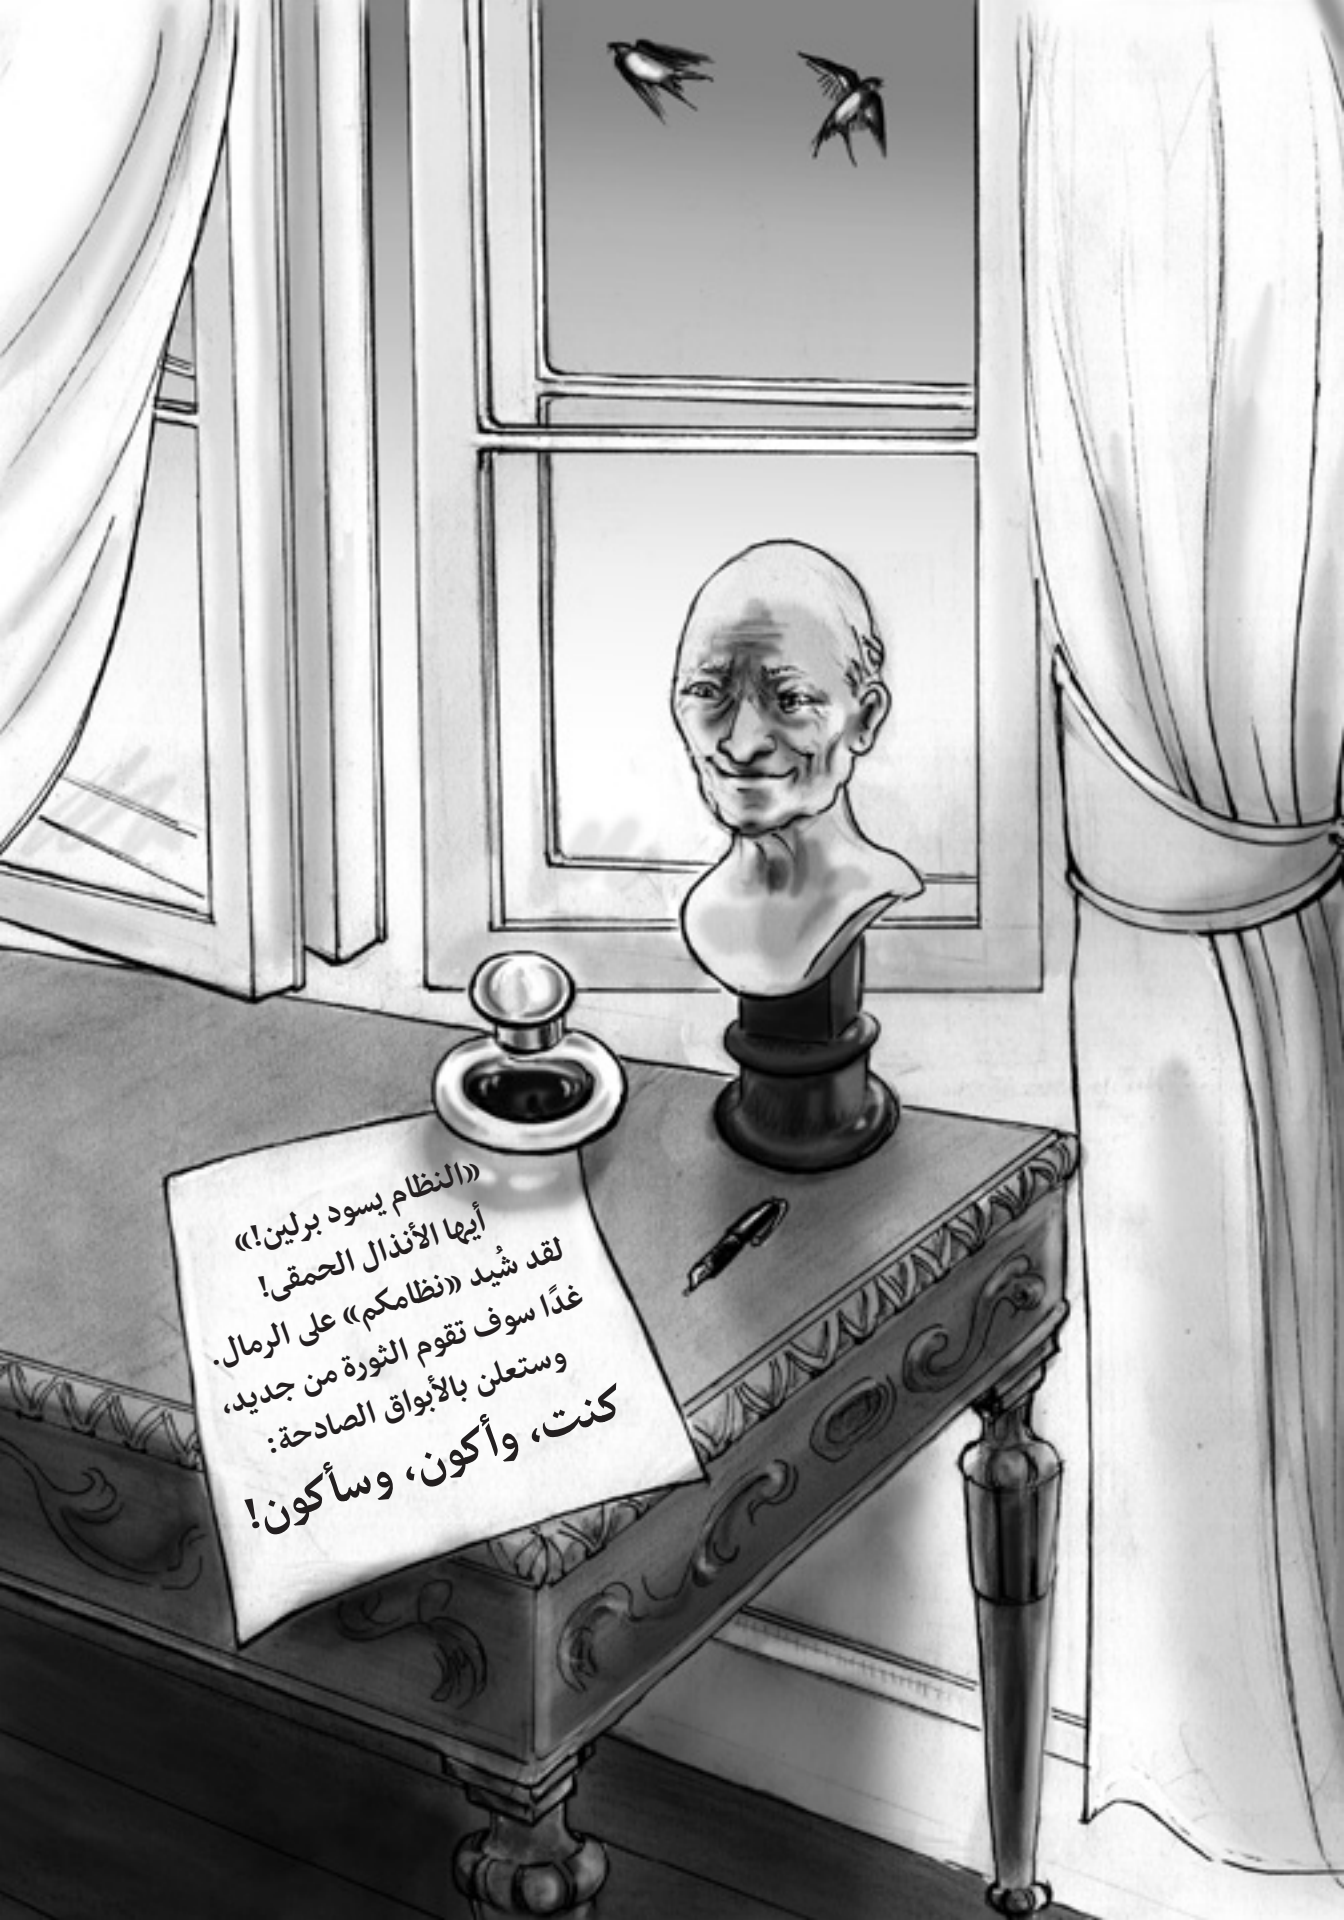 «النظام يسود برلين!»
أيها الأنذال الحمقى!
لقد شُيد «نظامكم» على الرمال.
غدًا سوف تقوم الثورة من جديد،
وستعلن بالأبواق الصادحة:
كنت، وأكون، وسأكون!